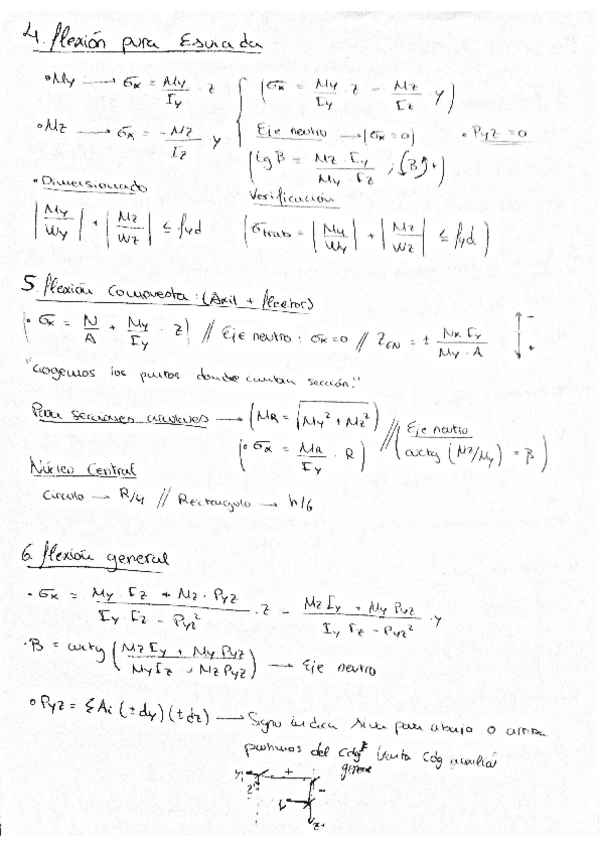 4. flexión pura Esviada
• My → σx = My/Iy · z { | σx = My/Iy · z − Mz/Iz · y )
• Mz → σx = −Mz/Iz · y Eje neutro → |σx = 0| • Pyz = 0
( tg B = Mz · Iy / My · Iz ; (B +)
• Dimensionado Verificación
|My/Wy| + |Mz/Wz| ≤ fyd ( σtrab = |My/Wy| + |Mz/Wz| ≤ fyd )
5. flexión compuesta: (Axil + flector)
( • σx = N/A + My/Iy · z ) // Eje neutro: σx = 0 // ZEN = ± Nx Iy / My · A − +
"cogemos los puntos donde cambian sección."
Para secciones circulares → ( MR = √(My² + Mz²) ) // Eje neutro
( • σx = MR/Iy · R ) ( arctg (Mz/My) = B )
Núcleo Central
Circulo → R/4 // Rectangulo → h/6
6. flexión general
• σx = (My · Iz + Mz · Pyz) / (Iy · Iz − Pyz²) · z − (Mz Iy + My Pyz) / (Iy Iz − Pyz²) · y
• B = arctg ( (Mz Iy + My Pyz) / (My Iz + Mz Pyz) ) → Eje neutro
• Pyz = ΣAi (±dy) (±dz) → Signo indica si va para abajo o arriba
partimos del Cdg hasta Cdg auxiliar
+
−
z+